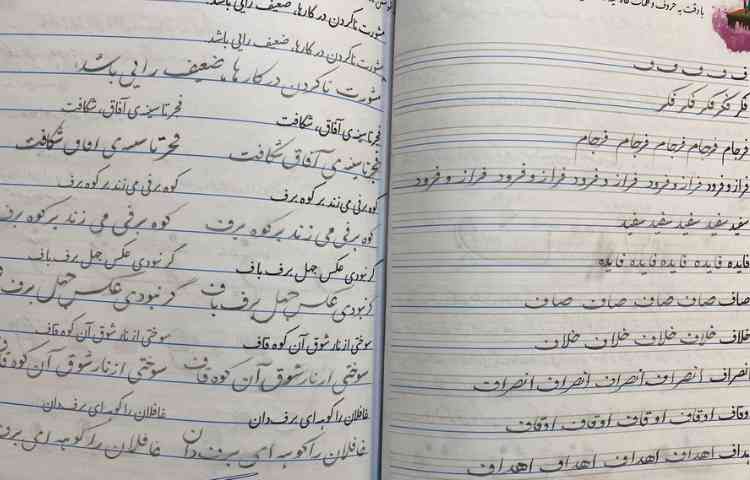 با دقت به حروف و کلمات
ف ف ف ف ف
فکر فکر فکر فکر فکر
فرجام فرجام فرجام فرجام فرجام
فراز و فرود فراز و فرود فراز و فرود فراز و فرود فراز و فرود
سفید سفید سفید سفید
فایده فایده فایده فایده فایده
صاف صاف صاف صاف صاف
خلاف خلاف خلاف خلاف خلاف
انصراف انصراف انصراف انصراف انصراف
اوقاف اوقاف اوقاف اوقاف
اهداف اهداف اهداف اهداف اهداف
مشورت ناکردن در کارها، ضعیف رایی باشد.
مشورت ناکردن در کارها، ضعیف رایی باشد.
مشورت ناکردن در کارها، ضعیف رایی باشد.
فجر تا سینه‌ی آفاق، شکافت فجر تا سینه‌ی آفاق، شکافت
فجر تا سینه ی آفاق شکافت فجر تا سینه ی آفاق شکافت
کوه برفی می زند بر کوه برف کوه برفی می زند بر کوه برف
کوه برفی می زند بر کوه برف کوه برفی می زند بر کوه برف
گر نبودی عکس جهل برف باف گر نبودی عکس جهل برف باف
گر نبودی عکس جهل برف باف گر نبودی عکس جهل برف
سوختی از نار شوق آن کوه قاف سوختی از نار شوق آن کوه قاف
سوختی از نار شوق آن کوه قاف سوختی از نار شوق آن کوه قاف
غافلان را کوه‌های برف دان غافلان را کوه‌های برف دان
غافلان را کوه های برف دان غافلان را کوه های برف